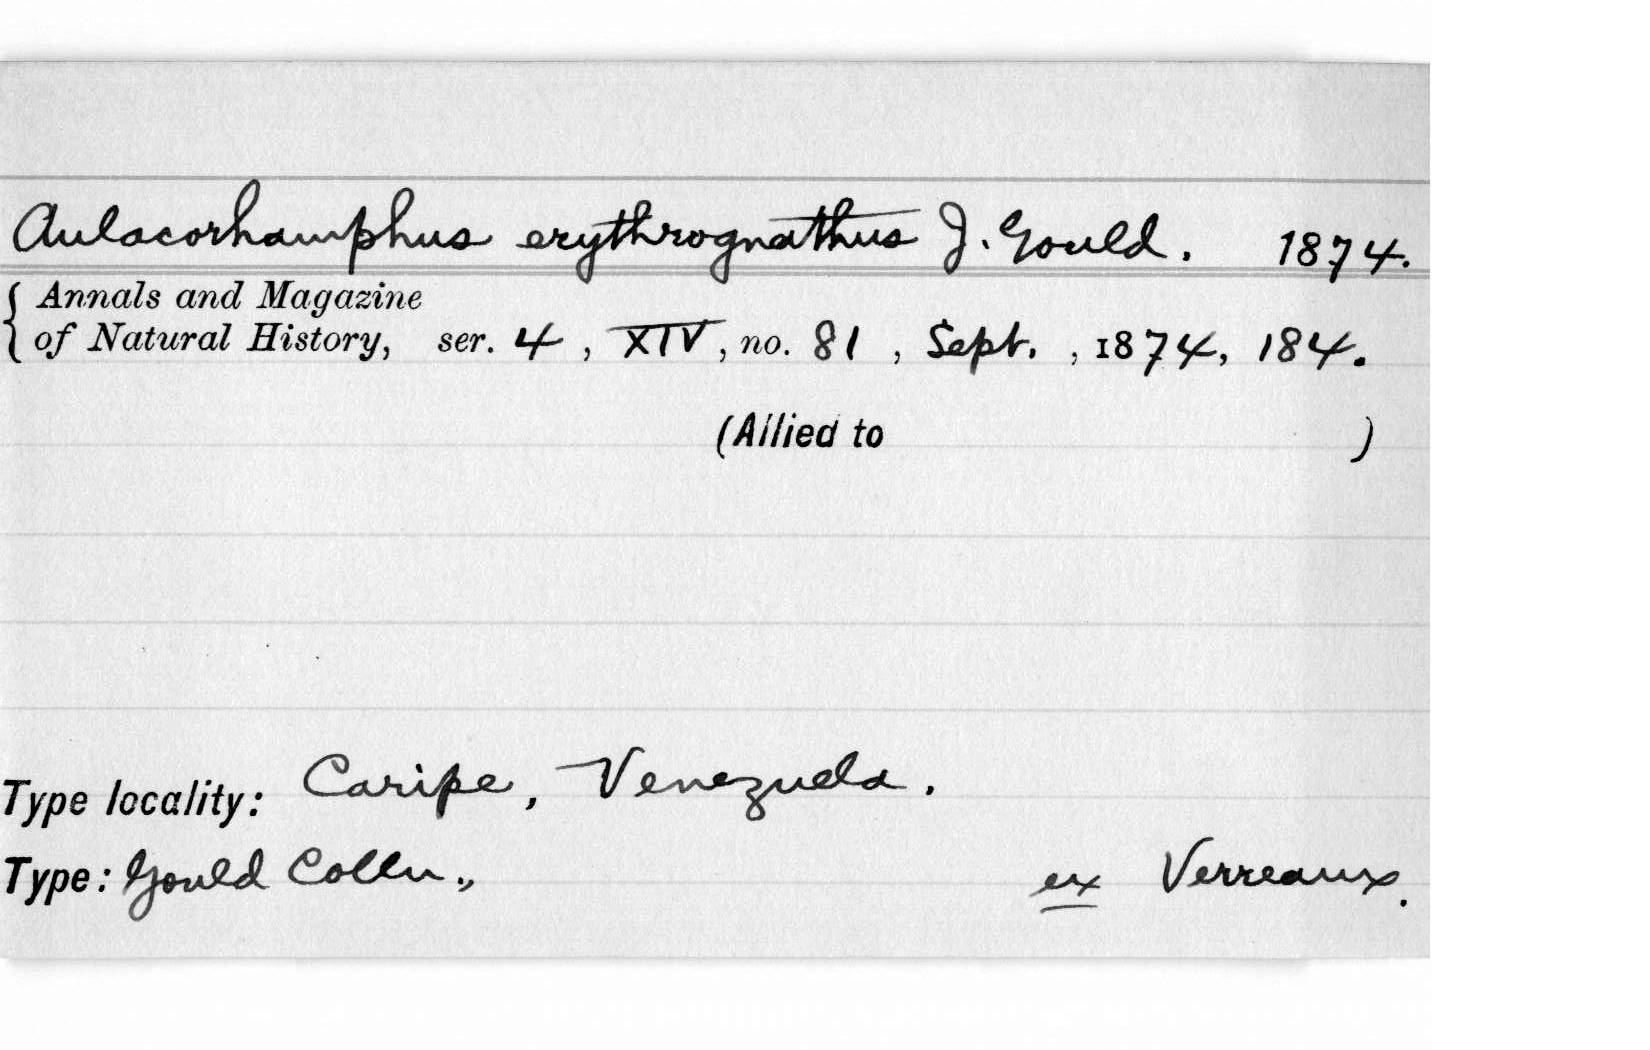 Aulacorhamphus erythrognathus J. Gould. 1874.
{ Annals and Magazine
of Natural History, ser. 4, XIV, no. 81, Sept., 1874, 184.
(Allied to )
Type locality: Caripe, Venezuela.
Type: Gould Colln., ex Verreaux.